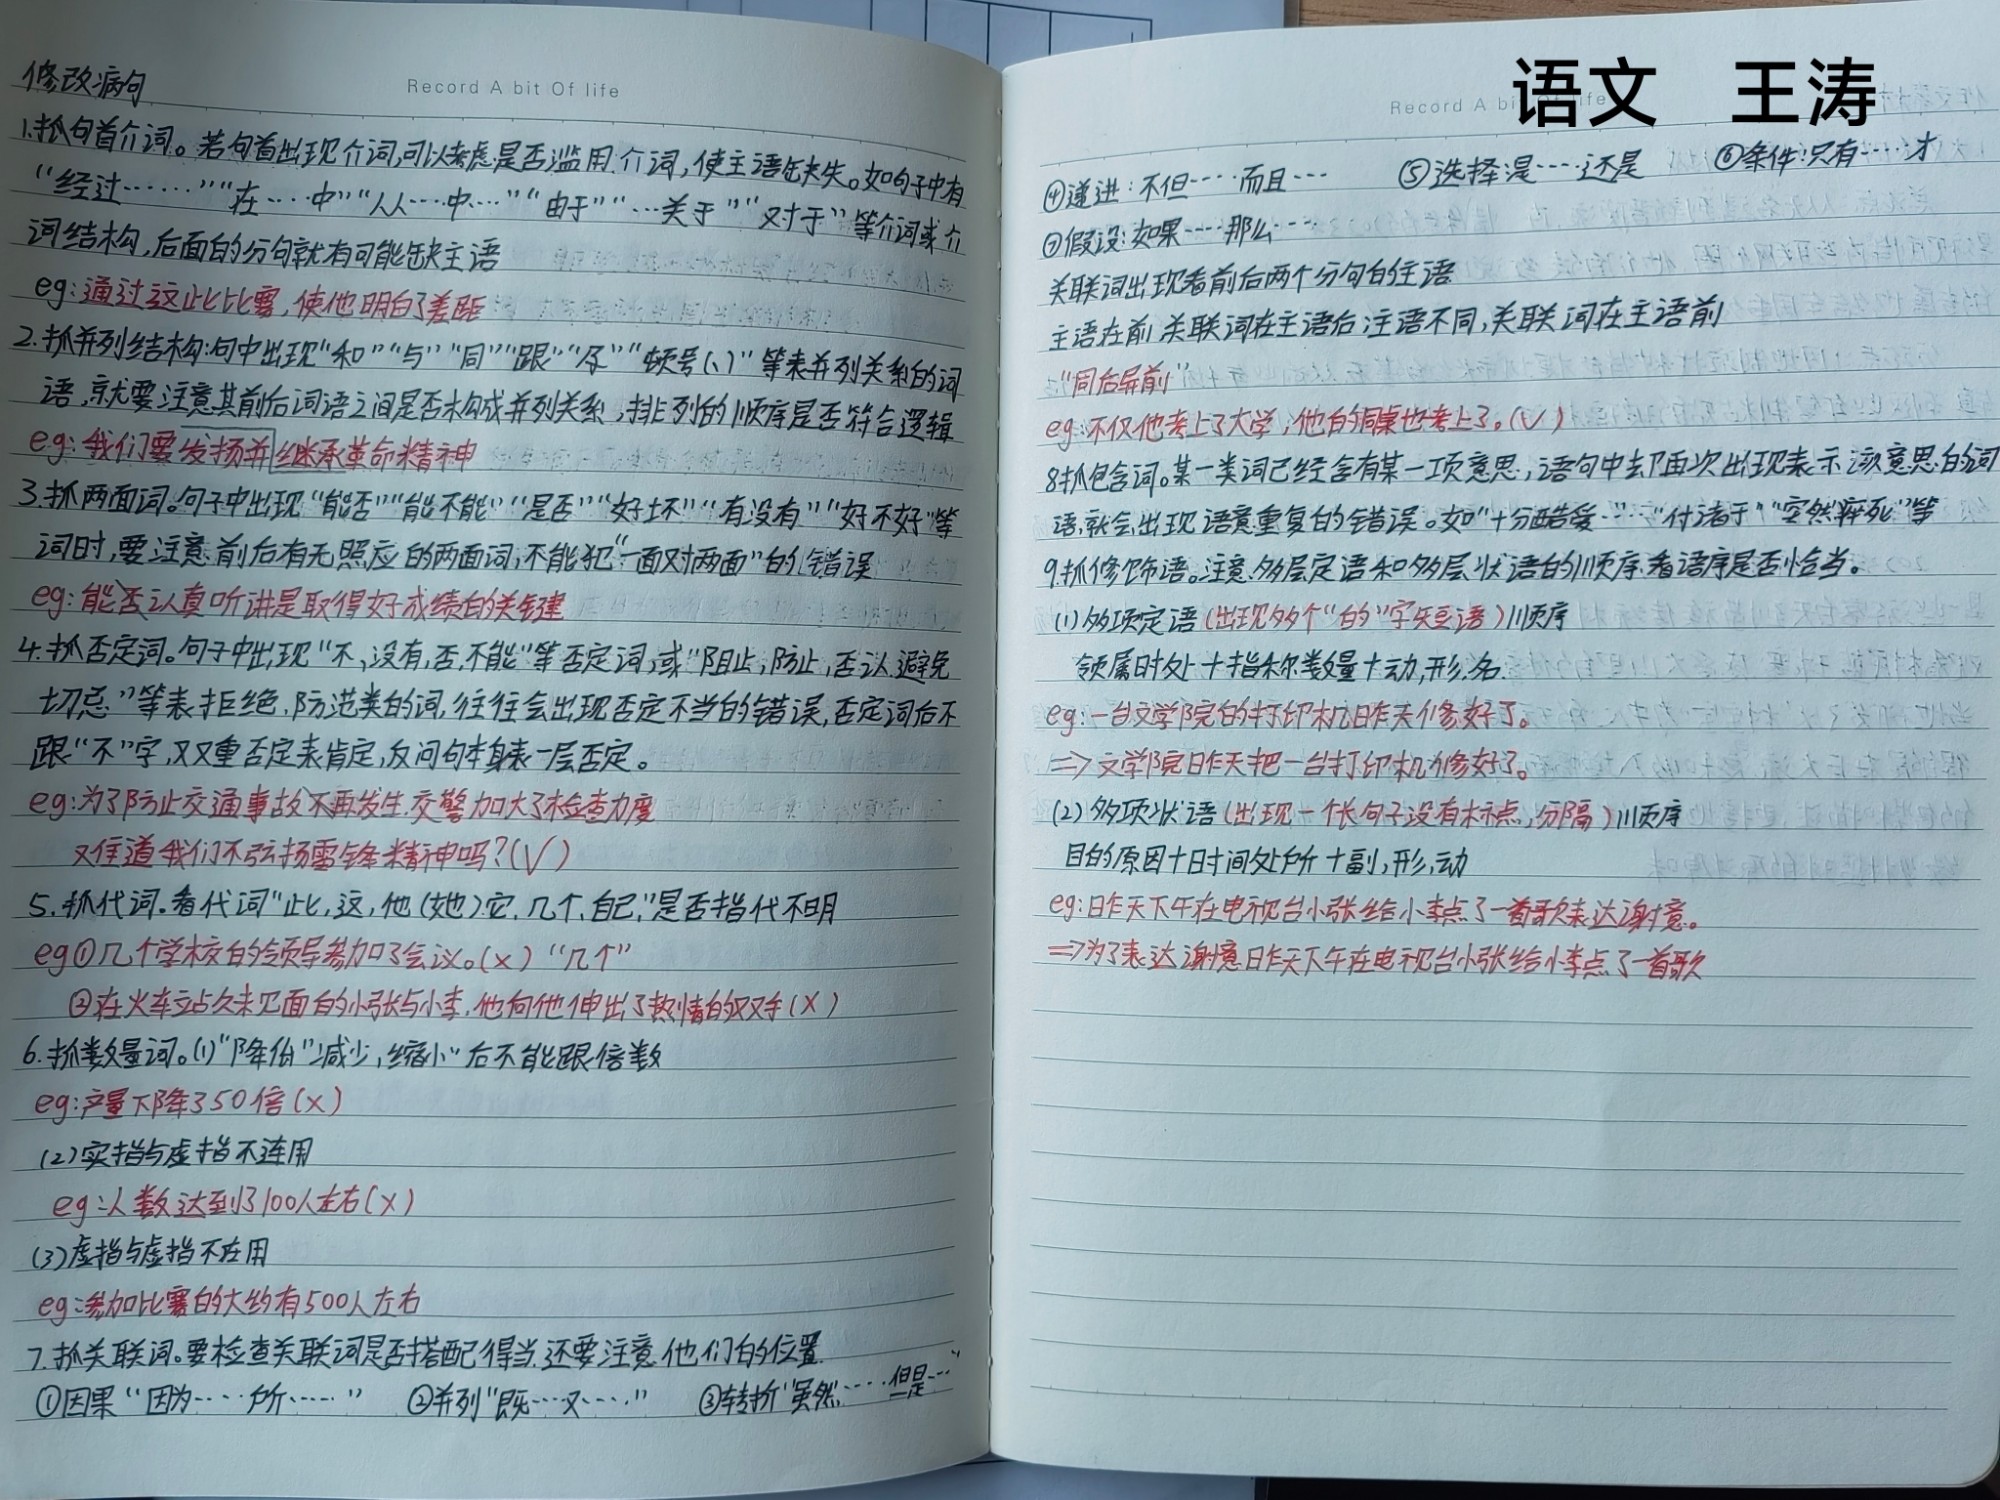 修改病句
Record A bit Of life
1.抓句首介词。若句首出现介词,可以考虑是否滥用介词,使主语缺失。如句子中有
“经过……”“在……中”“从……中…”“由于”“…关于”“对于”等介词或介
词结构,后面的分句就有可能缺主语
eg:通过这次比赛,使他明白了差距
2.抓并列结构:句中出现“和”“与”“同”“跟”“及”“顿号(、)”等表并列关系的词
语,就要注意其前后词语之间是否构成并列关系,排列的顺序是否符合逻辑
eg:我们要发扬并继承革命精神
3.抓两面词。句子中出现“能否”“能不能”“是否”“好坏”“有没有”“好不好”等
词时,要注意前后有无照应的两面词,不能犯“一面对两面”的错误
eg:能否认真听讲是取得好成绩的关键
4.抓否定词。句子中出现“不,没有,否,不能”等否定词,或“阻止,防止,否认,避免
切忌”等表拒绝,防范类的词,往往会出现否定不当的错误,否定词后不
跟“不”字,双重否定表肯定,反问句本身表一层否定。
eg:为了防止交通事故不再发生,交警加大了检查力度
难道我们不弘扬雷锋精神吗?(√)
5.抓代词.看代词“此,这,他(她)它,几个,自己”是否指代不明
eg①几个学校的领导参加了会议。(×) “几个”
②在火车站久未见面的小张与小李,他向他伸出了热情的双手(×)
6.抓数量词。(1)“降低”“减少,缩小”后不能跟倍数
eg:产量下降350倍(×)
(2)实指与虚指不连用
eg:人数达到了100人左右(×)
(3)虚指与虚指不在用
eg:参加比赛的大约有500人左右
7.抓关联词。要检查关联词是否搭配得当,还要注意他们的位置
①因果“因为……所……” ②并列“既…又……” ③转折“虽然……但是…”
语文 王涛
Record A bit Of life
④递进:不但……而且… ⑤选择是……还是 ⑥条件:只有……才
⑦假设:如果……那么……
关联词出现看前后两个分句的主语
主语在前,关联词在主语后;主语不同,关联词在主语前
“同后异前”
eg:不仅他考上了大学,他的同桌也考上了。(√)
8抓包含词。某一类词已经含有某一项意思,语句中却再次出现表示该意思的词
语,就会出现语意重复的错误。如“十分酷爱…”“付诸于”“突然猝死”等
9.抓修饰语。注意多层定语和多层状语的顺序,看语序是否恰当。
(1)多项定语(出现多个“的”字短语)顺序
领属时处+指称数量+动,形,名
eg:一台文学院的打印机昨天修好了。
=>文学院昨天把一台打印机修好了。
(2)多项状语(出现一个长句子没有标点,分隔)顺序
目的原因+时间处所+副,形,动
eg:昨天下午在电视台小张给小李点了一首歌表达谢意。
=>为了表达谢意昨天下午在电视台小张给小李点了一首歌